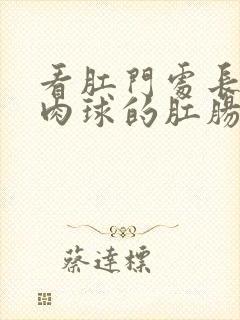 看肛門處長
肉球的肛腸
蔡達標